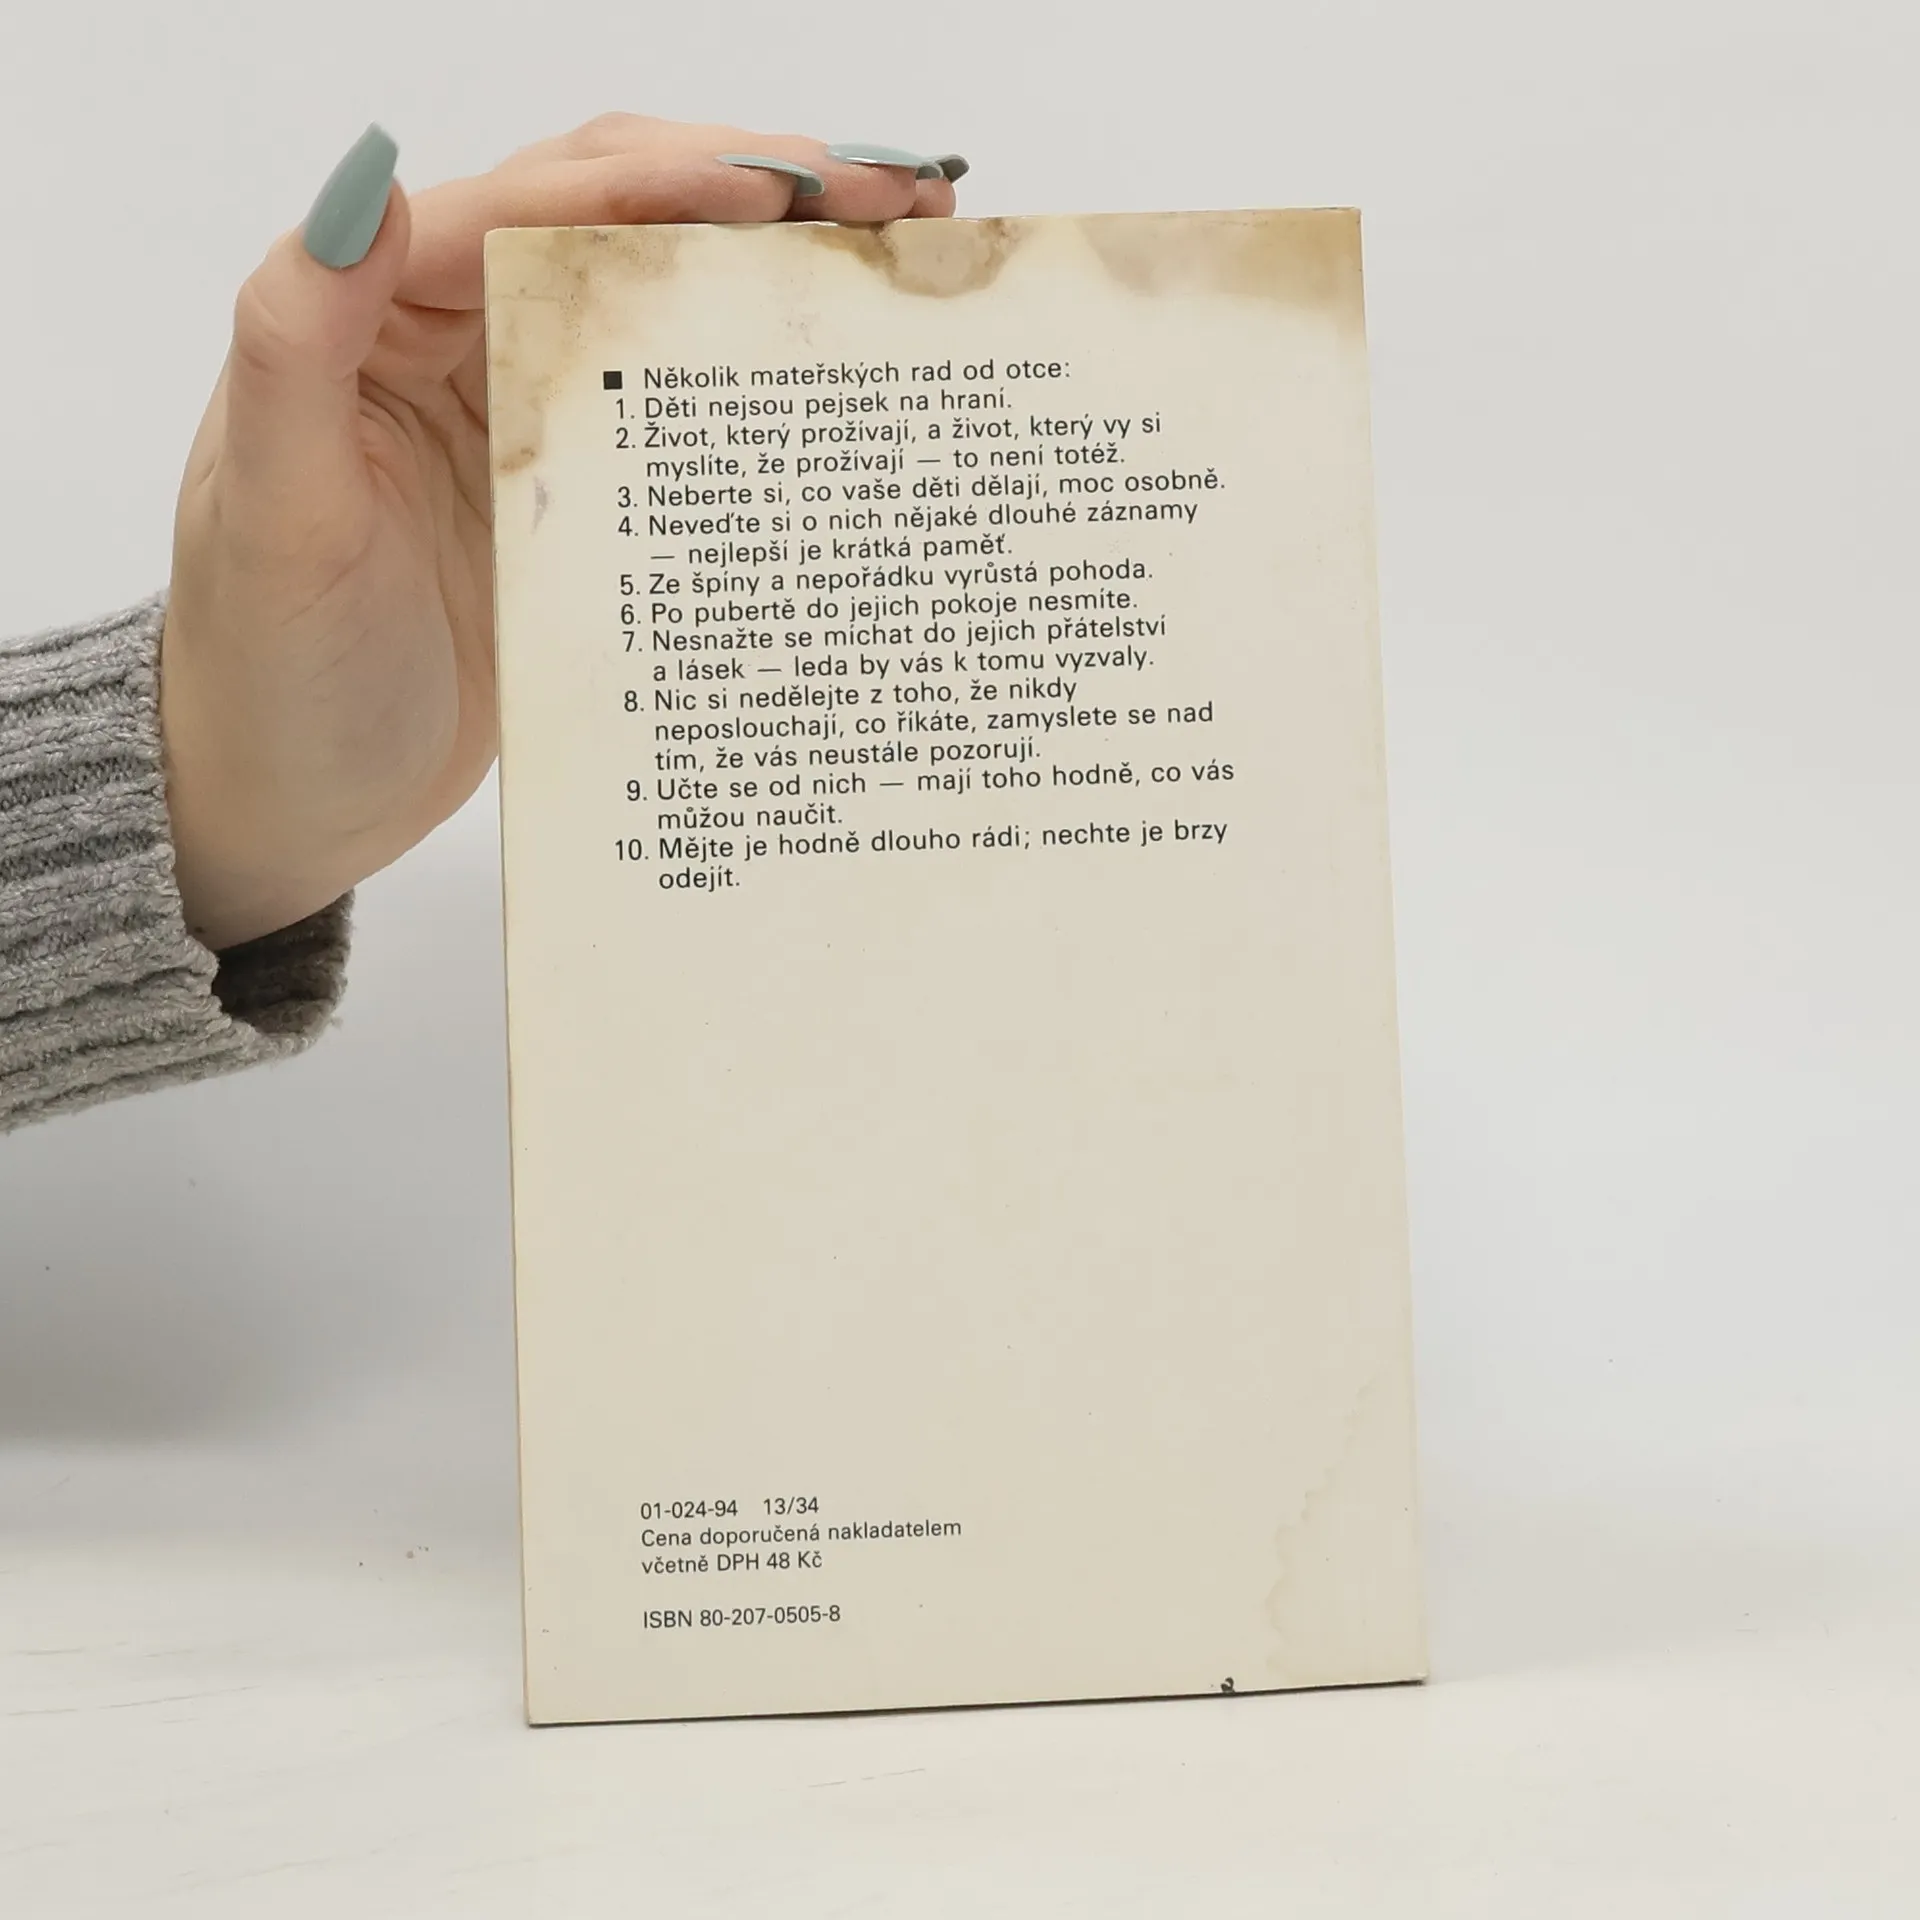 ■ Několik mateřských rad od otce:
1. Děti nejsou pejsek na hraní.
2. Život, který prožívají, a život, který vy si
myslíte, že prožívají — to není totéž.
3. Neberte si, co vaše děti dělají, moc osobně.
4. Neveďte si o nich nějaké dlouhé záznamy
— nejlepší je krátká paměť.
5. Ze špíny a nepořádku vyrůstá pohoda.
6. Po pubertě do jejich pokoje nesmíte.
7. Nesnažte se míchat do jejich přátelství
a lásek — leda by vás k tomu vyzvaly.
8. Nic si nedělejte z toho, že nikdy
neposlouchají, co říkáte, zamyslete se nad
tím, že vás neustále pozorují.
9. Učte se od nich — mají toho hodně, co vás
můžou naučit.
10. Mějte je hodně dlouho rádi; nechte je brzy
odejít.
01-024-94 13/34
Cena doporučená nakladatelem
včetně DPH 48 Kč
ISBN 80-207-0505-8